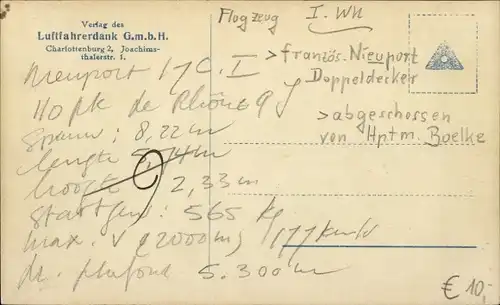 Verlag des
Luftfahrerdank G.m.b.H.
Charlottenburg 2, Joachims-
thalerstr. 1.
Flugzeug I. WK
> französ. Nieuport
Doppeldecker
> abgeschossen
von Hptm. Boelke
Nieuport 17 C. I
110 pk de Rhône 9 J
Spann: 8,22 m
lengte 5,74 m
hoogte 2,33 m
startgew: 565 kg
max. V (2000 m) 177 km/u
plafond 5.300 m
€ 10,-